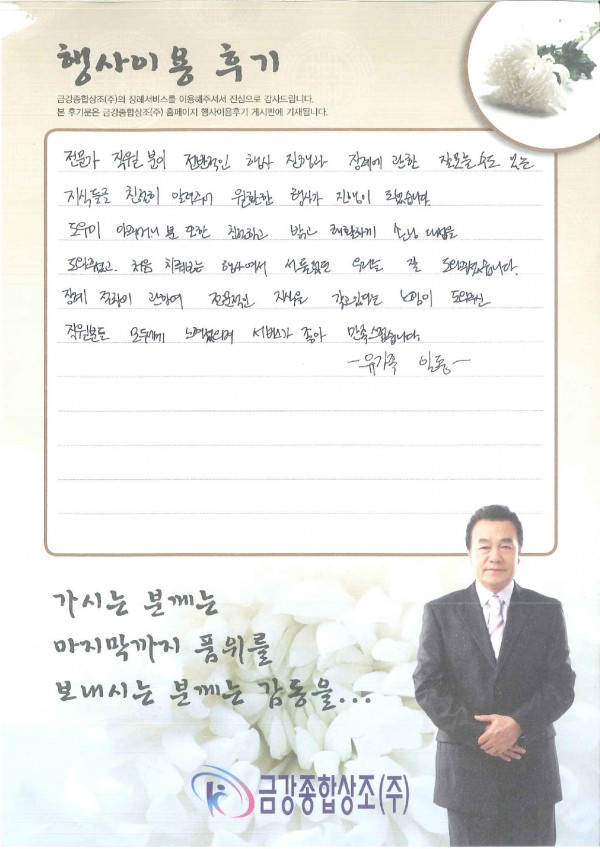 행사이용 후기
금강종합상조(주)의 장례서비스를 이용해주셔서 진심으로 감사드립니다.
본 후기문은 금강종합상조(주) 홈페이지 행사이용후기 게시판에 기재됩니다.
전문가 직원 분이 전반적인 행사 진행과 장례에 관한 잘모를수도 있는
지식들을 친절히 알려주셔 원활한 행사가 진행이 되었습니다.
도우미 아주머니 분 또한 친절하고 밝고 쾌활하게 손님 대접을
도와주셨고, 처음 치뤄보는 행사여서 서툴렀던 우리를 잘 도와주셨습니다.
장례 절차에 관하여 전문적인 지식을 갖고있다는 느낌이 도와주신
직원분도 모두에게 느껴졌으며 서비스가 좋아 만족스럽습니다.
-유가족 일동-
가시는 분께는
마지막까지 품위를
보내시는 분께는 감동을...
금강종합상조(주)